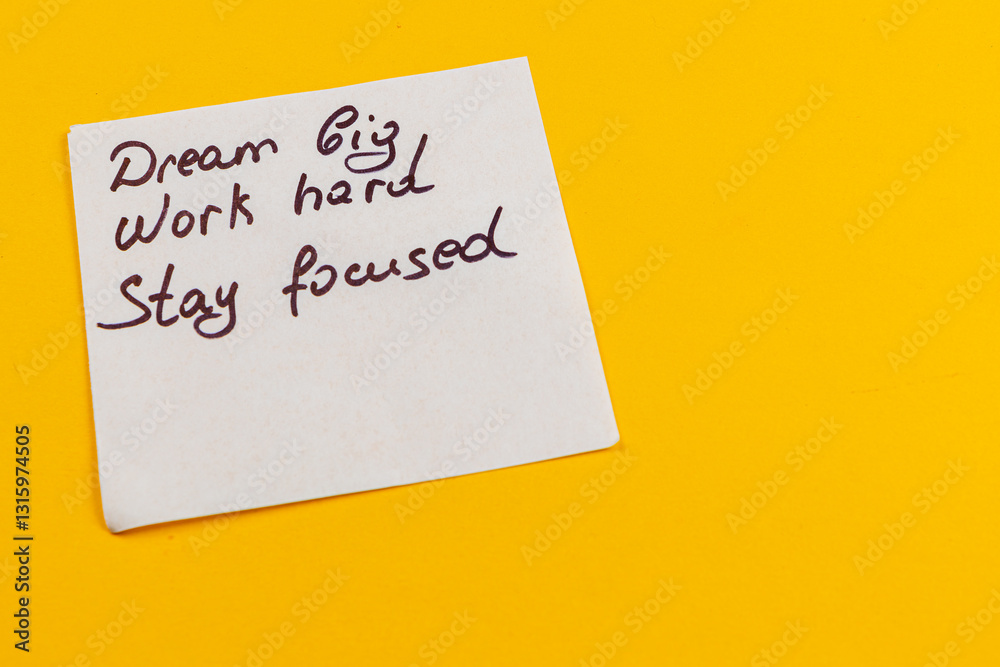 Dream big
Work hard
Stay focused
Adobe Stock | #1315974505
Adobe Stock